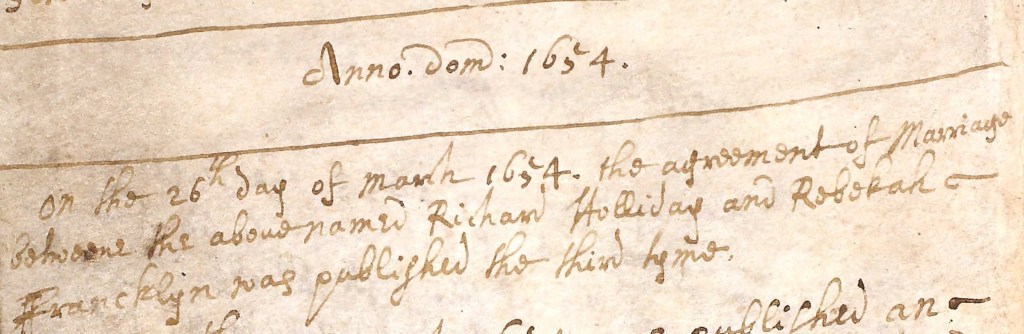 Anno. dom: 1654.
On the 26th day of March 1654. the agreement of Marriage
betweene the above named Richard Holliday and Rebekah
Francklyn was published the third tyme.
published an